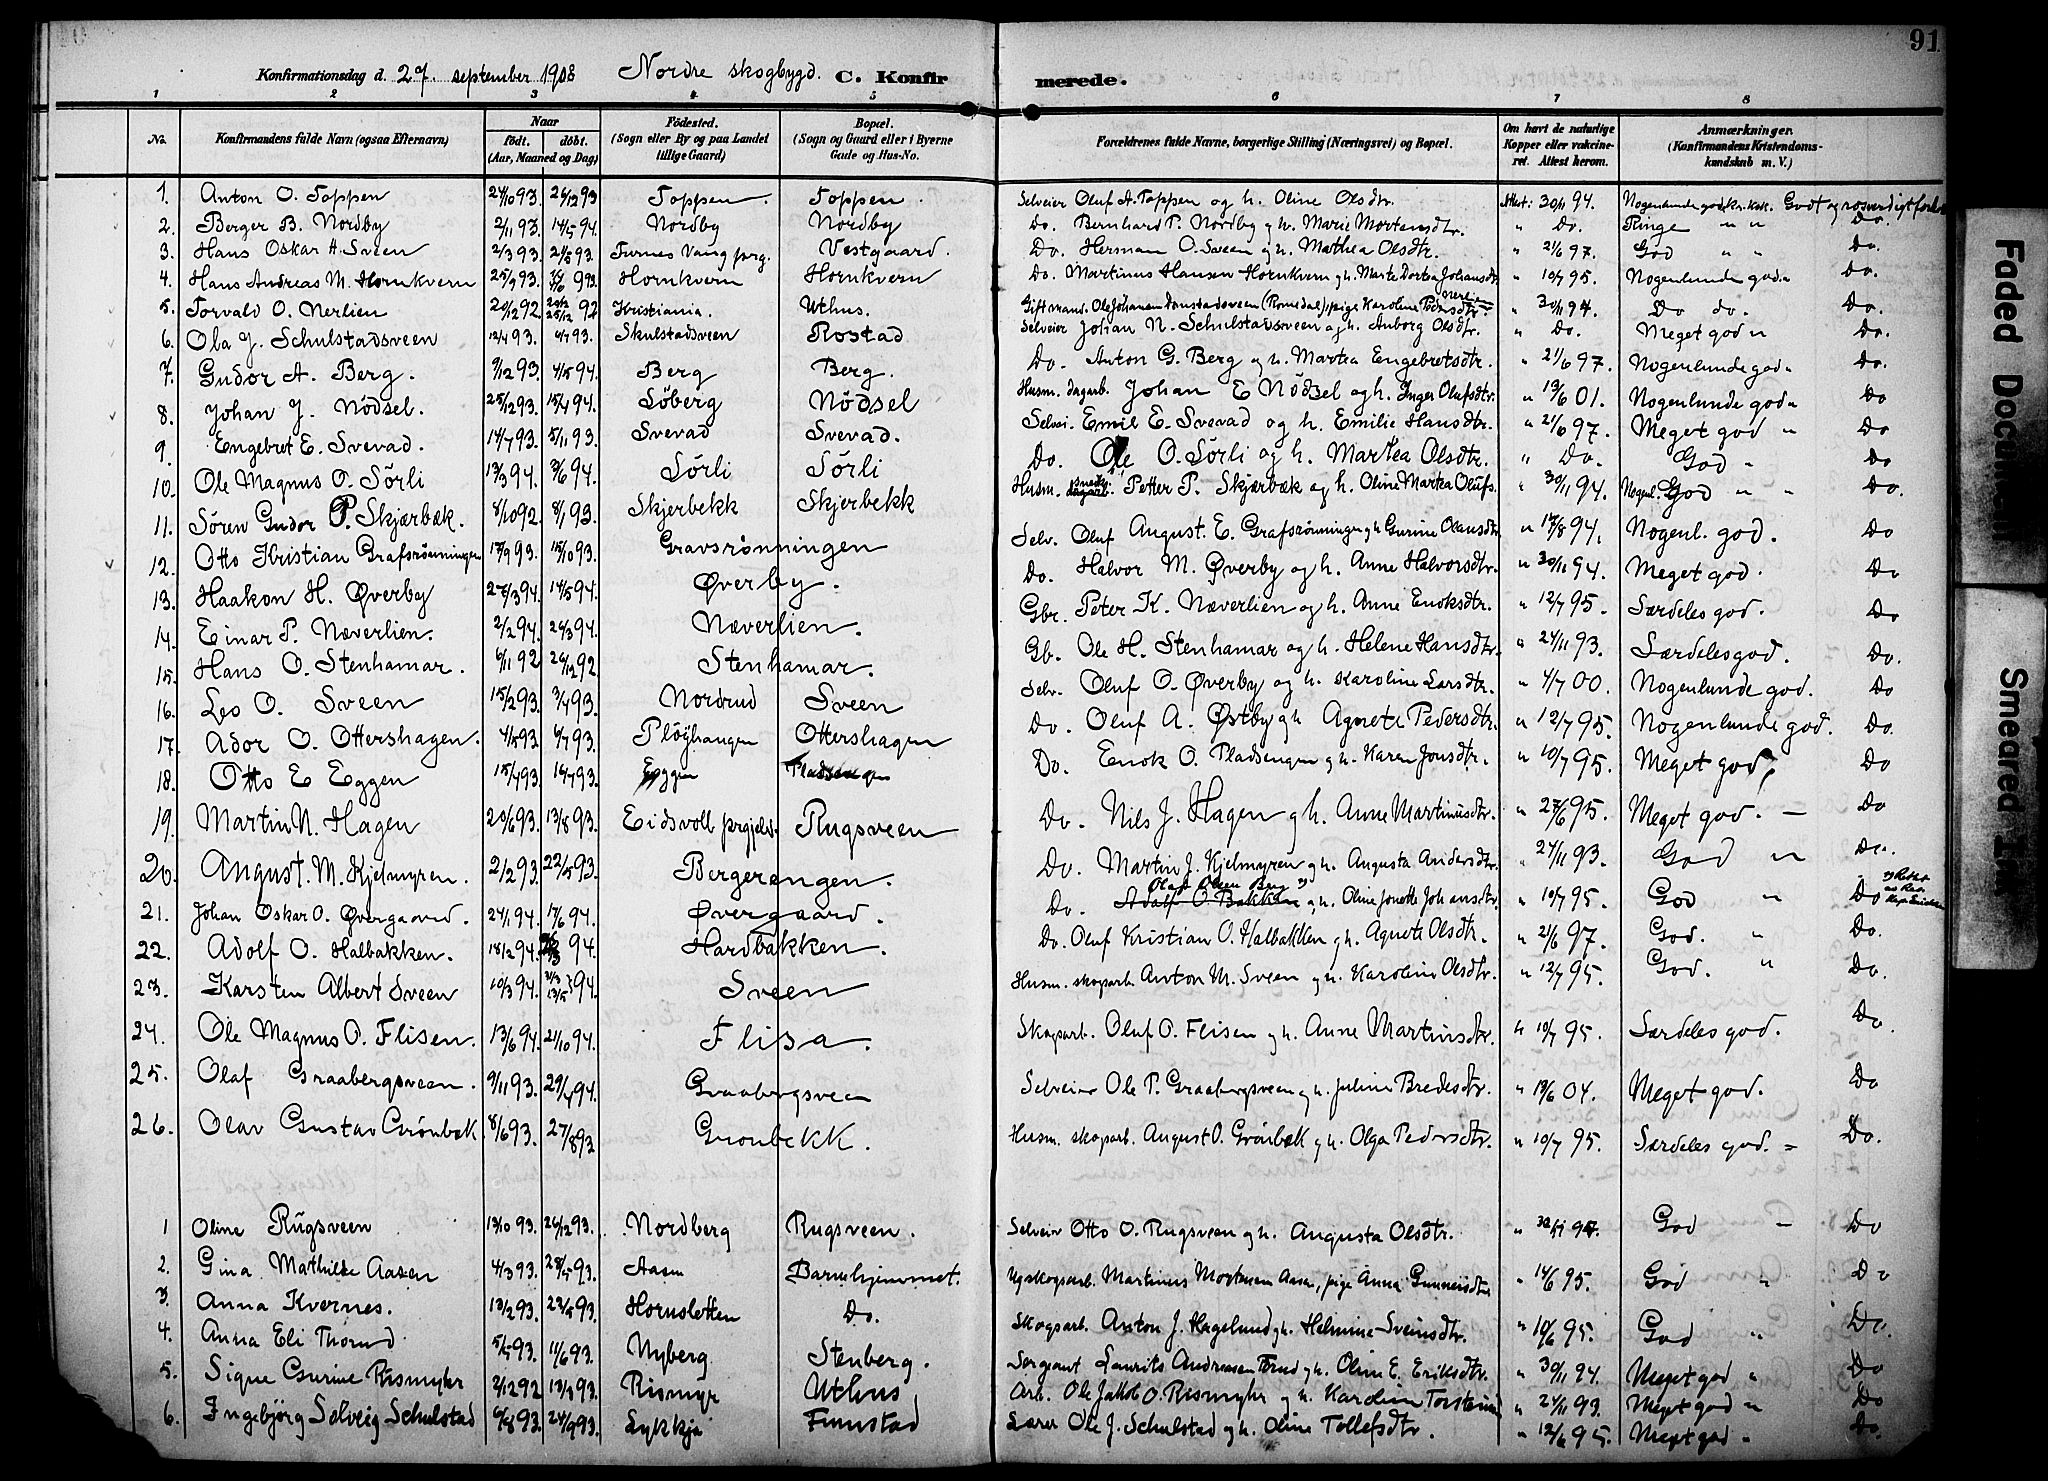 91
Konfirmationsdag d. 27. september 1908 Nordre skogbygd. C. Konfirmerede.
1 2 3 4 5 6 7 8
No. Konfirmandens fulde Navn (ogsaa Efternavn) Naar født. døbt. (Aar, Maaned og Dag) Fødested. (Sogn eller By og paa Landet tillige Gaard) Bopæl. (Sogn og Gaard eller i Byerne Gade og Hus-No. Forældrenes fulde Navne, borgerlige Stilling (Næringsvei) og Bopæl. Om havt de naturlige Kopper eller vakcineret. Attest herom. Anmærkninger. (Konfirmandens Kristendomskundskab m. V.)
1. Anton O. Toppen 24/10 93. 26/12 93 Toppen. Toppen. Selveier Oluf A. Toppen og h. Oline Olsdtr. Attest: 30/11 94. Nogenlunde god kr.kdsk. Godt og rosværdigt forh.
2. Berger B. Nordby 2/11 93. 14/5 94. Nordby Nordby Do. Bernhard P. Nordby og h. Marie Mortensdtr. " Do. Ringe " " Do.
3. Hans Oskar A. Sveen 2/3 93. 21/5 93. Furnes Vang prg. Vestgaard. Do. Herman O. Sveen og h. Mathea Olsdtr. " 21/6 97. God " " Do.
4. Hans Andreas M. Hornkvern 25/9 93. 93. Hornkvern Hornkvern Do. Martinus Hansen Hornkvern og h. Marte Dortea Johansdtr " 10/7 95. Nogenlunde god " Do.
5. Torvald O. Nerlien 20/12 92 92 Kristiania. Uthus. Gift mand. Ole Johansen Danstadsveen (Romedal), pige Karoline Nerlien " 30/11 94. Do do. Do.
6. Ola J. Schulstadsveen 12/4 93. 4/7 93. Skulstadsveen Rostad Selveier Johan N. Schulstadsveen og h. Anborg Olsdtr. " Do. Meget god " Do.
7. Gudor A. Berg. 9/12 93. 4/5 94. Berg Berg. Do. Anton G. Berg og h. Martea Engebretsdtr. " 21/6 97. Nogenlunde god " Do.
8. Johan J. Nödsel. 25/12 93. 15/4 94. Löberg Nödsel Husm. dagarb. Johan E Nödsel og h. Inger Olufsdtr. " 19/6 01. Nogenlunde god " Do
9. Engebret E. Svevad. 14/7 93. 5/11 93. Svevad Svevad. Selvei. Emil E. Svevad og h. Emilie Hansdtr. " 21/6 97. Meget god " Do
10. Ole Magnus O. Sörli 13/3 94. 3/6 94. Sörli Sörli Do. Ole O. Sörli og h. Martea Olsdtr. " Do. God " Do
11. Sören Gudor P. Skjærbæk. 8/10 92 8/1 93. Skjerbekk Skjerbekk Husm. Petter P. Skjærbæk og h. Oline Martea Olufs. " 30/11 94. Nogenl. God " " Do.
12. Otto Kristian Grafsrønningen 17/9 93. 15/10 93. Gravsrønningen Selv. Oluf August. E. Grafsrønningen og h Gurine Olausdtr " 17/8 94. Nogenl. god. Do
13. Haakon H. Øverby 27/3 94. 14/5 94. Øverby. Do. Halvor M. Øverby og h. Anne Halvorsdtr. " 30/11 94. Meget god. Do
14. Einar P. Næverlien. 2/2 94. 26/3 94. Næverlien. Gbr. Peter K. Næverlien og h. Anne Enoksdtr. " 12/7 95. Særdeles god. Do
15. Hans O. Stenhamar. 6/11 92 26/12 92. Stenhamar. Gb. Ole H. Stenhamar og h. Helene Hansdtr. " 24/11 93. Særdeles god. Do.
16. Leo O. Sveen 15/2 93. 3/4 93. Nordrud Sveen Selv. Oluf O. Øverby og h. Karoline Larsdtr. " 4/7 00. Nogenlunde god. Do
17. Ador O. Ottershagen. 4/5 93 9/7 93. Pløyhaugen Ottershagen Do. Oluf A. Østby og h Agnete Pedersdtr. " 12/7 95. Nogenlunde god. Do.
18. Otto E Eggen 15/4 93. 16/7 93. Eggen Pladsengen Do. Enok O. Pladsengen og h. Karen Jonsdtr. " 10/7 95. Meget god Do
19. Martin N. Hagen 20/6 93. 13/8 93. Eidsvoll prgjeld. Rugsveen Do. Nils J. Hagen og h. Anne Martinusdtr. " 27/6 95. Meget god. — Do
20. August. M. Kjelmyren. 2/2 93. 22/5 93. Bergerengen. Do. Martin J. Kjelmyren og h. Augusta Andersdtr. " 24/11 93. God " Do.
21. Johan Oskar O. Øvergaard. 24/1 94. 17/6 94. Øvergaard. Do. Adolf O. Bakken Olaf Olsen Berg og h. Oline Jonette Johansdtr. " 10/7 95. God " Do
22. Adolf O. Halbakken. 18/2 94. 94. Hardbakken. Do. Oluf Kristian O. Halbakken og h. Agnete Olsdtr. " 21/6 97. God. " Do.
23. Karsten Albert Sveen 10/3 94. 94. Sveen Husm. skogsarb. Anton M. Sveen og h. Karoline Olsdtr. " 12/7 95. God. " Do.
24. Ole Magnus O. Flisen. 13/6 94. 21/10 94. Flisa. Skogsarb. Oluf O. Flisen og h. Anne Martinsdtr. " 10/7 95. Særdeles god. Do.
25. Olaf Graabergsveen. 9/11 93. 29/4 94. Graabergsveen Selveier Ole P. Graabergsveen og h. Juline Bredesdtr. " 19/6 04. Meget god. Do
26. Olav Gustav Grönbæk. 8/6 93. 27/8 93 Gronbekk. Husm. skogarb. August O. Grönbæk og h. Olga Pedersdtr. " 10/7 95. Særdeles god. " Do.
1 Oline Rugsveen 13/10 93. 26/12 93. Nordberg Rugsveen. Selveier Otto O. Rugsveen og h. Augusta Olsdtr. " 30/11 94. God " Do
2. Gina Mathilde Aasen 4/3 93. 28/5 93. Aasen Barnehjemmet. Ugskogsarb. Martinus Mortensen Aasen, pige Anna Gunnersdtr " 14/6 95. God " Do
3. Anna Kvernes. 13/2 93. 23/5 93. Hornsletten Do. Skogsarb. Anton J. Hagelund og h. Helmine Sveinsdtr. " 10/6 95. God " Do.
4. Anna Eli Thorud 5/5 93. 11/6 93. Nyberg Stenberg. Sergeant Laurits Andreasen Torud og h. Oline E. Eriksdtr. " 30/11 94. Meget god " Do
5. Signe Gurine Rismyhr 2/12 92 13/3 93. Rismyr Uthus Arb. Ole Jakob O. Rismyhr og h. Karoline Torstensd " 24/11 93. Meget god " Do
6. Ingebjörg Solveig Schulstad 6/8 93. 24/9 93. Lykkja Finnstad Lærer Ole J. Schulstad og h. Oline Tollefsdtr. " 12/6 95. Meget god " Do.
Faded Document
Smeared Ink